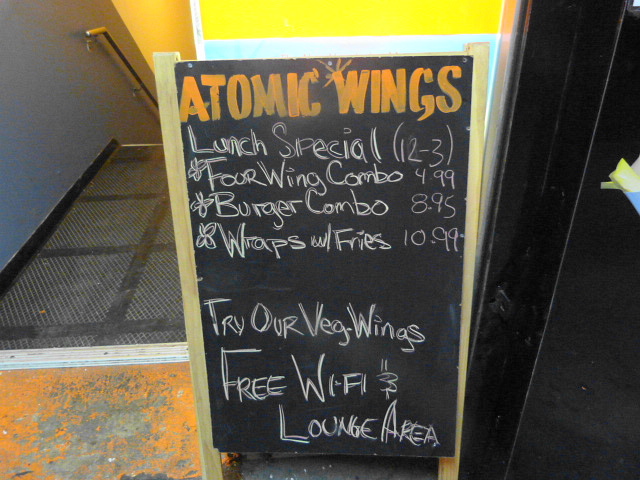 ATOMIC WINGS
Lunch Special (12-3)
*Four Wing Combo 4.99
*Burger Combo 8.95
*Wraps w/Fries 10.99
Try Our Veg-Wings
Free Wi-Fi &
Lounge Area